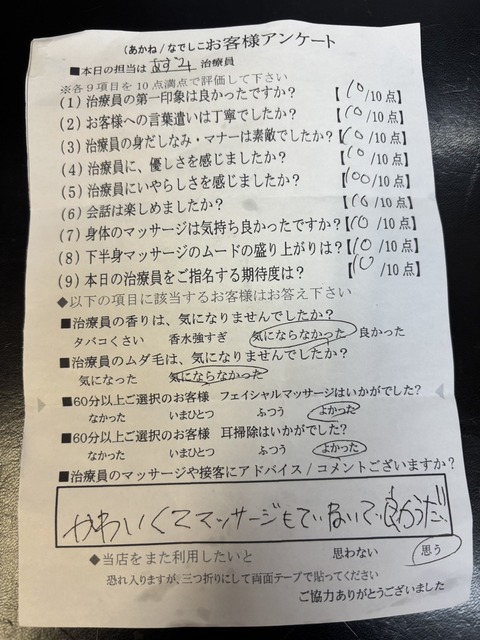 (あかね/なでしこ)お客様アンケート
■本日の担当は あずさ 治療員
※各9項目を10点満点で評価して下さい
(1) 治療員の第一印象は良かったですか? 【10/10点】
(2) お客様への言葉遣いは丁寧でしたか? 【10/10点】
(3) 治療員の身だしなみ・マナーは素敵でしたか?【10/10点】
(4) 治療員に、優しさを感じましたか? 【10/10点】
(5) 治療員にいやらしさを感じましたか? 【100/10点】
(6) 会話は楽しめましたか? 【10/10点】
(7) 身体のマッサージは気持ち良かったですか?【10/10点】
(8) 下半身マッサージのムードの盛り上がりは?【10/10点】
(9) 本日の治療員をご指名する期待度は? 【10/10点】
◆以下の項目に該当するお客様はお答え下さい
■治療員の香りは、気になりませんでしたか?
タバコくさい 香水強すぎ 気にならなかった 良かった
■治療員のムダ毛は、気になりませんでしたか?
気になった 気にならなかった
■60分以上ご選択のお客様 フェイシャルマッサージはいかがでした?
なかった いまひとつ ふつう よかった
■60分以上ご選択のお客様 耳掃除はいかがでした?
なかった いまひとつ ふつう よかった
■治療員のマッサージや接客にアドバイス/コメントございますか?
かわいくてマッサージもていねいで良かった!!
◆当店をまた利用したいと 思わない 思う
恐れ入りますが、三つ折りにして両面テープで貼ってください
ご協力ありがとうございました